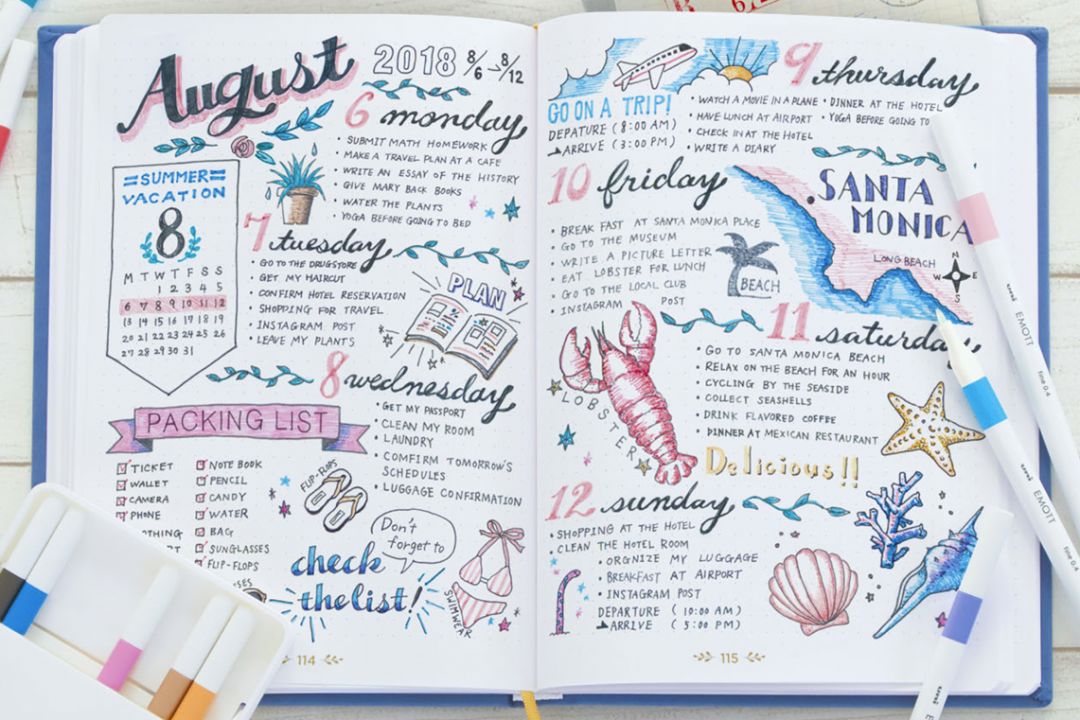 August
2018 8/6 → 8/12
6 monday
• SUBMIT MATH HOMEWORK
• MAKE A TRAVEL PLAN AT A CAFE
• WRITE AN ESSAY OF THE HISTORY
• GIVE MARY BACK BOOKS
• WATER THE PLANTS
• YOGA BEFORE GOING TO BED
SUMMER
VACATION
8
M T W T F S S
1 2 3 4 5
6 7 8 9 10 11 12
13 14 15 16 17 18 19
20 21 22 23 24 25 26
27 28 29 30 31
7 tuesday
• GO TO THE DRUGSTORE
• GET MY HAIRCUT
• CONFIRM HOTEL RESERVATION
• SHOPPING FOR TRAVEL
• INSTAGRAM POST
• LEAVE MY PLANTS
PLAN
8 wednesday
• GET MY PASSPORT
• CLEAN MY ROOM
• LAUNDRY
• COMFIRM TOMORROW'S
SCHEDULES
• LUGGAGE CONFIRMATION
PACKING LIST
TICKET
WALLET
CAMERA
PHONE
OTHING
RT
NOTE BOOK
PENCIL
CANDY
WATER
BAG
SUNGLASSES
FLIP-FLOPS
SES
FLIP-FLOPS
Don't
forget to
check
the list!
SWIMWEAR
114
GO ON A TRIP!
DEPATURE (8:00 AM)
ARRIVE (3:00 PM)
9 thursday
• WATCH A MOVIE IN A PLANE
• HAVE LUNCH AT AIRPORT
• CHECK IN AT THE HOTEL
• WRITE A DIARY
• DINNER AT THE HOTEL
• YOGA BEFORE GOING TO
10 friday
• BREAK FAST AT SANTA MONIKA PLACE
• GO TO THE MUSEUM
• WRITE A PICTURE LETTER
• EAT LOBSTER FOR LUNCH
• GO TO THE LOCAL CLUB
• INSTAGRAM POST
BEACH
SANTA
MONICA
LONG BEACH
N
W E
S
11 saturday
• GO TO SANTA MONICA BEACH
• RELAX ON THE BEACH FOR AN HOUR
• CYCLING BY THE SEASIDE
• COLLECT SEASHELLS
• DRINK FLAVORED COFFEE
• DINNER AT MEXICAN RESTAURANT
LOBSTER
Delicious!!
12 sunday
• SHOPPING AT THE HOTEL
• CLEAN THE HOTEL ROOM
• ORGNIZE MY LUGGAGE
• BREAKFAST AT AIRPORT
• INSTAGRAM POST
DEPARTURE (10:00 AM)
ARRIVE (5:00 PM)
115
uni EMOTT fine 0.4
uni EMOTT fine 0.4
uni